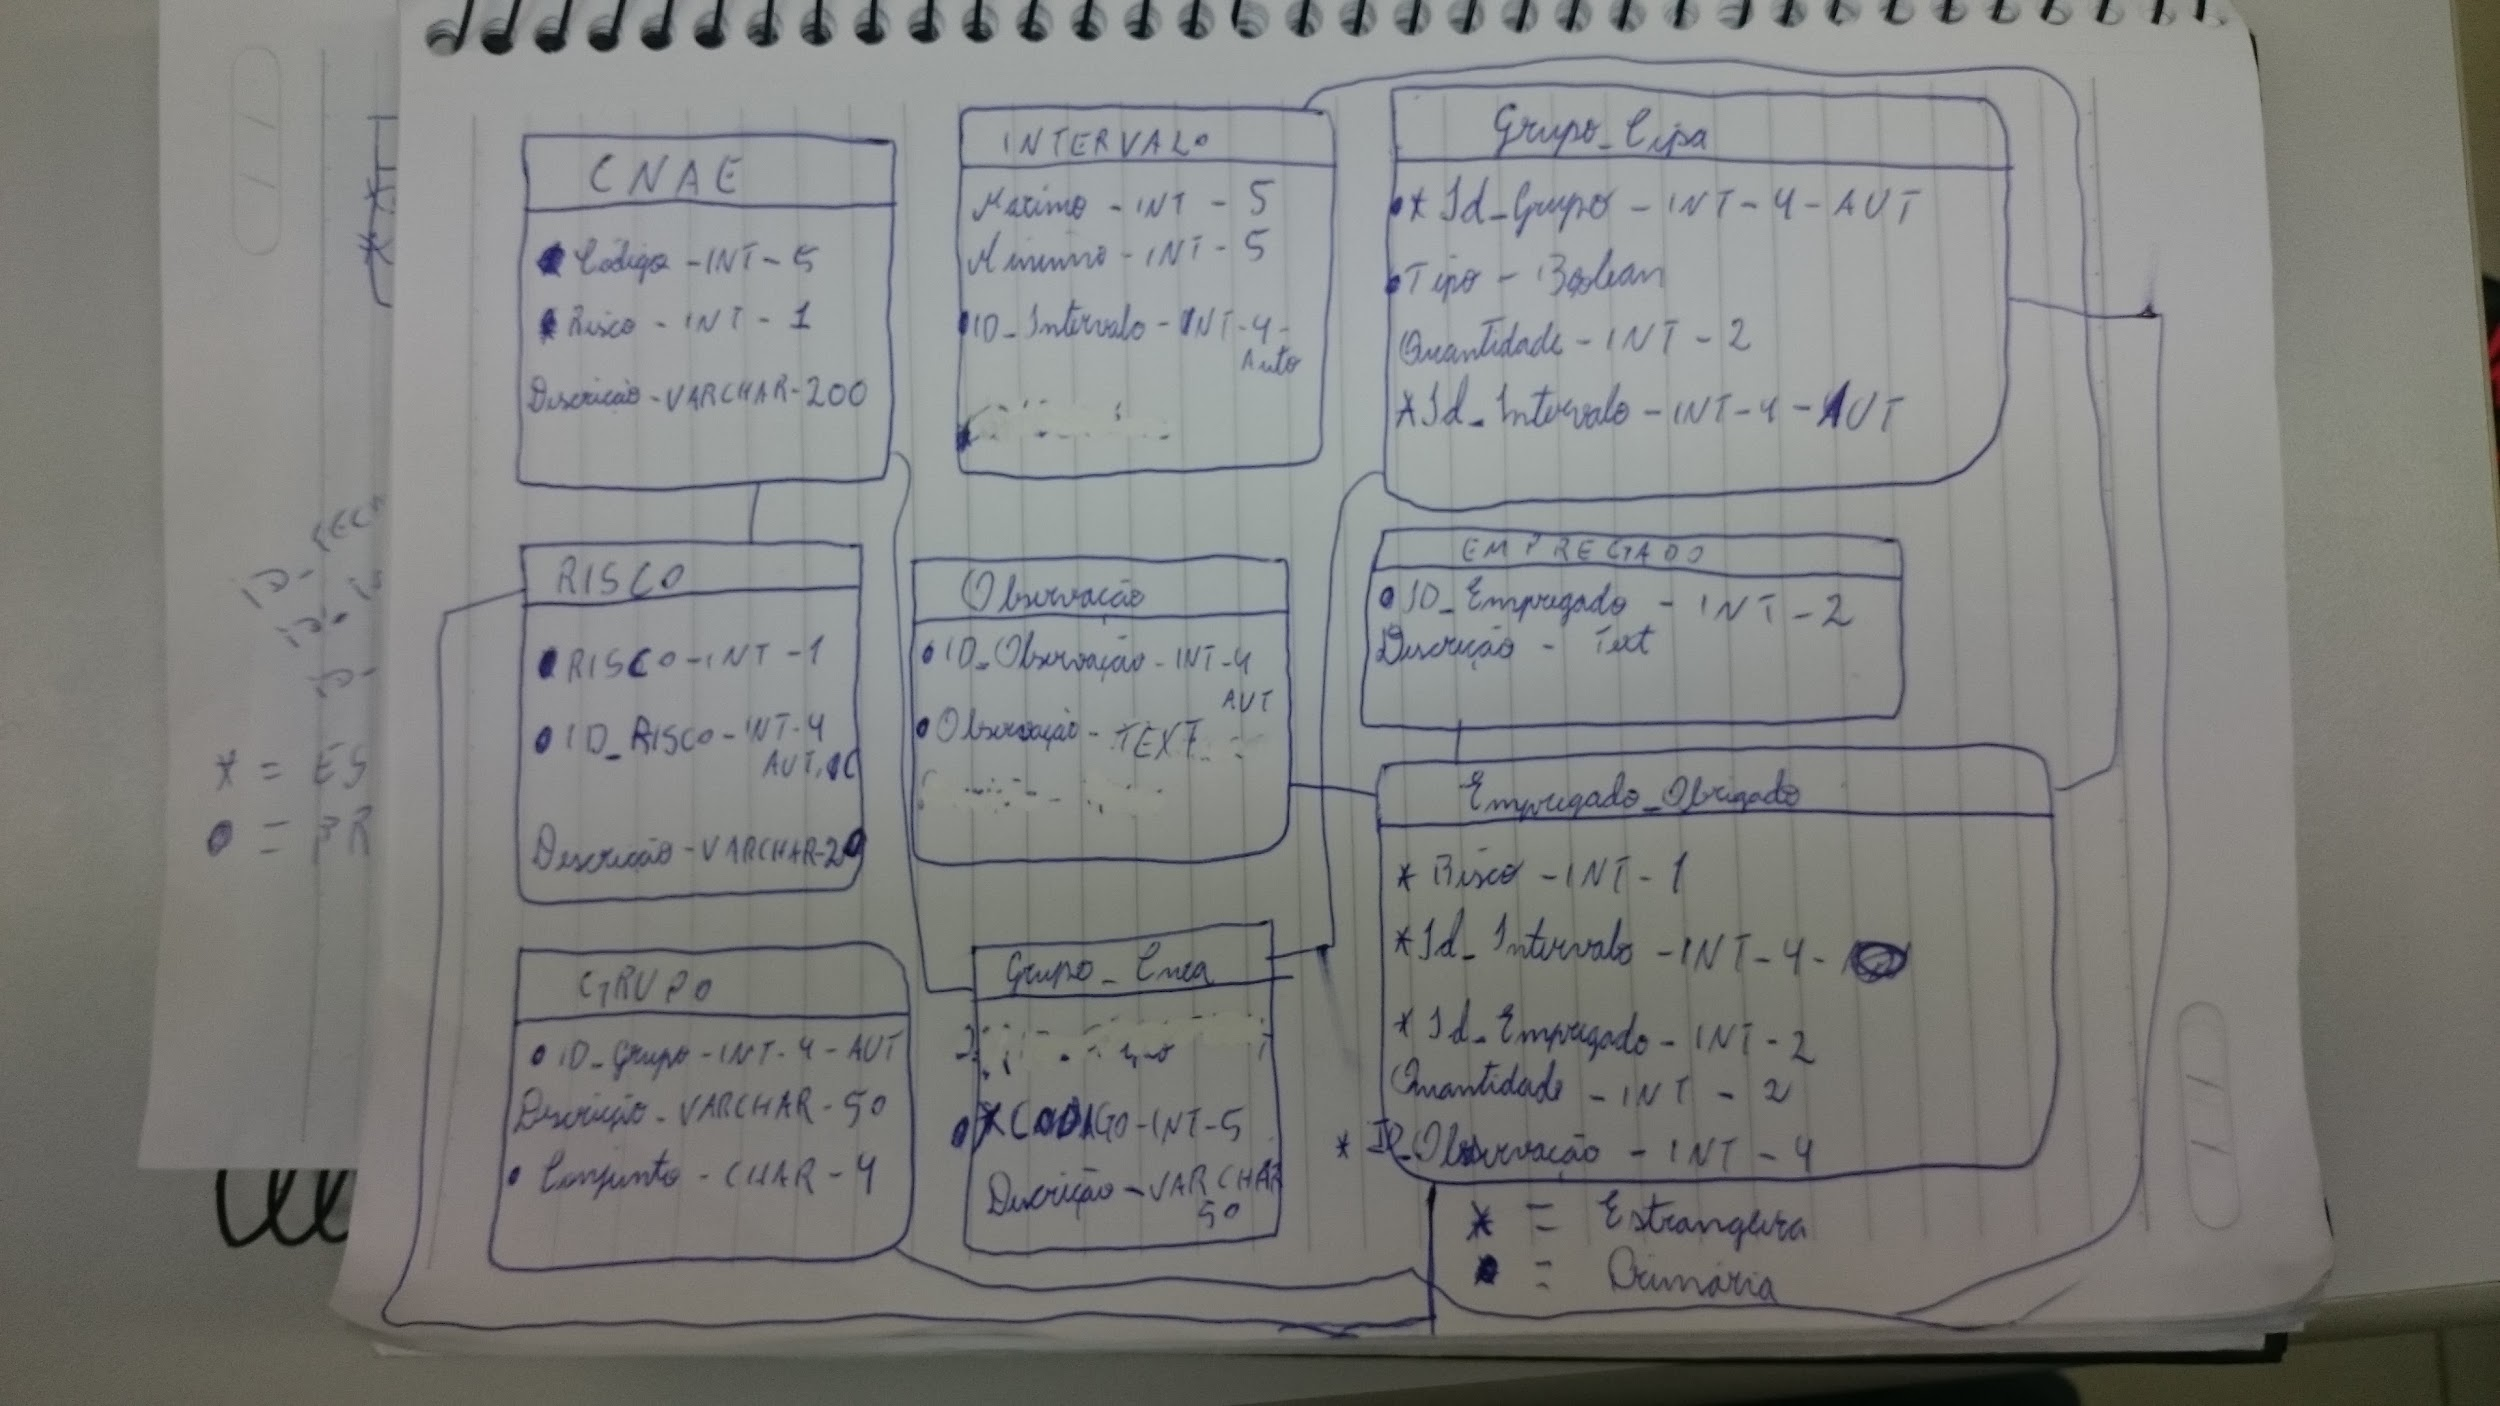 CNAE
Código - INT - 5
Risco - INT - 1
Descrição - VARCHAR - 200
INTERVALO
Maximo - INT - 5
Minimo - INT - 5
ID_Intervalo - INT - 4 -
Auto
Grupo_Cipa
* Id_Grupo - INT - 4 - AUT
Tipo - Boolean
Quantidade - INT - 2
* Id_Intervalo - INT - 4 - AUT
RISCO
RISCO - INT - 1
ID_RISCO - INT - 4
AUT.
Descrição - VARCHAR - 20
Observação
ID_Observação - INT - 4
AUT
Observação - TEXT
EMPREGADO
ID_Empregado - INT - 2
Descrição - Text
Empregado_Obrigado
* Risco - INT - 1
* Id_Intervalo - INT - 4 -
* Id_Empregado - INT - 2
Quantidade - INT - 2
* ID_Observação - INT - 4
GRUPO
ID_Grupo - INT - 4 - AUT
Descrição - VARCHAR - 50
Conjunto - CHAR - 4
Grupo_Cnea
* CODIGO - INT - 5
Descrição - VARCHAR
50
* = Estrangeira
● = Primária
* = ES
● = PR